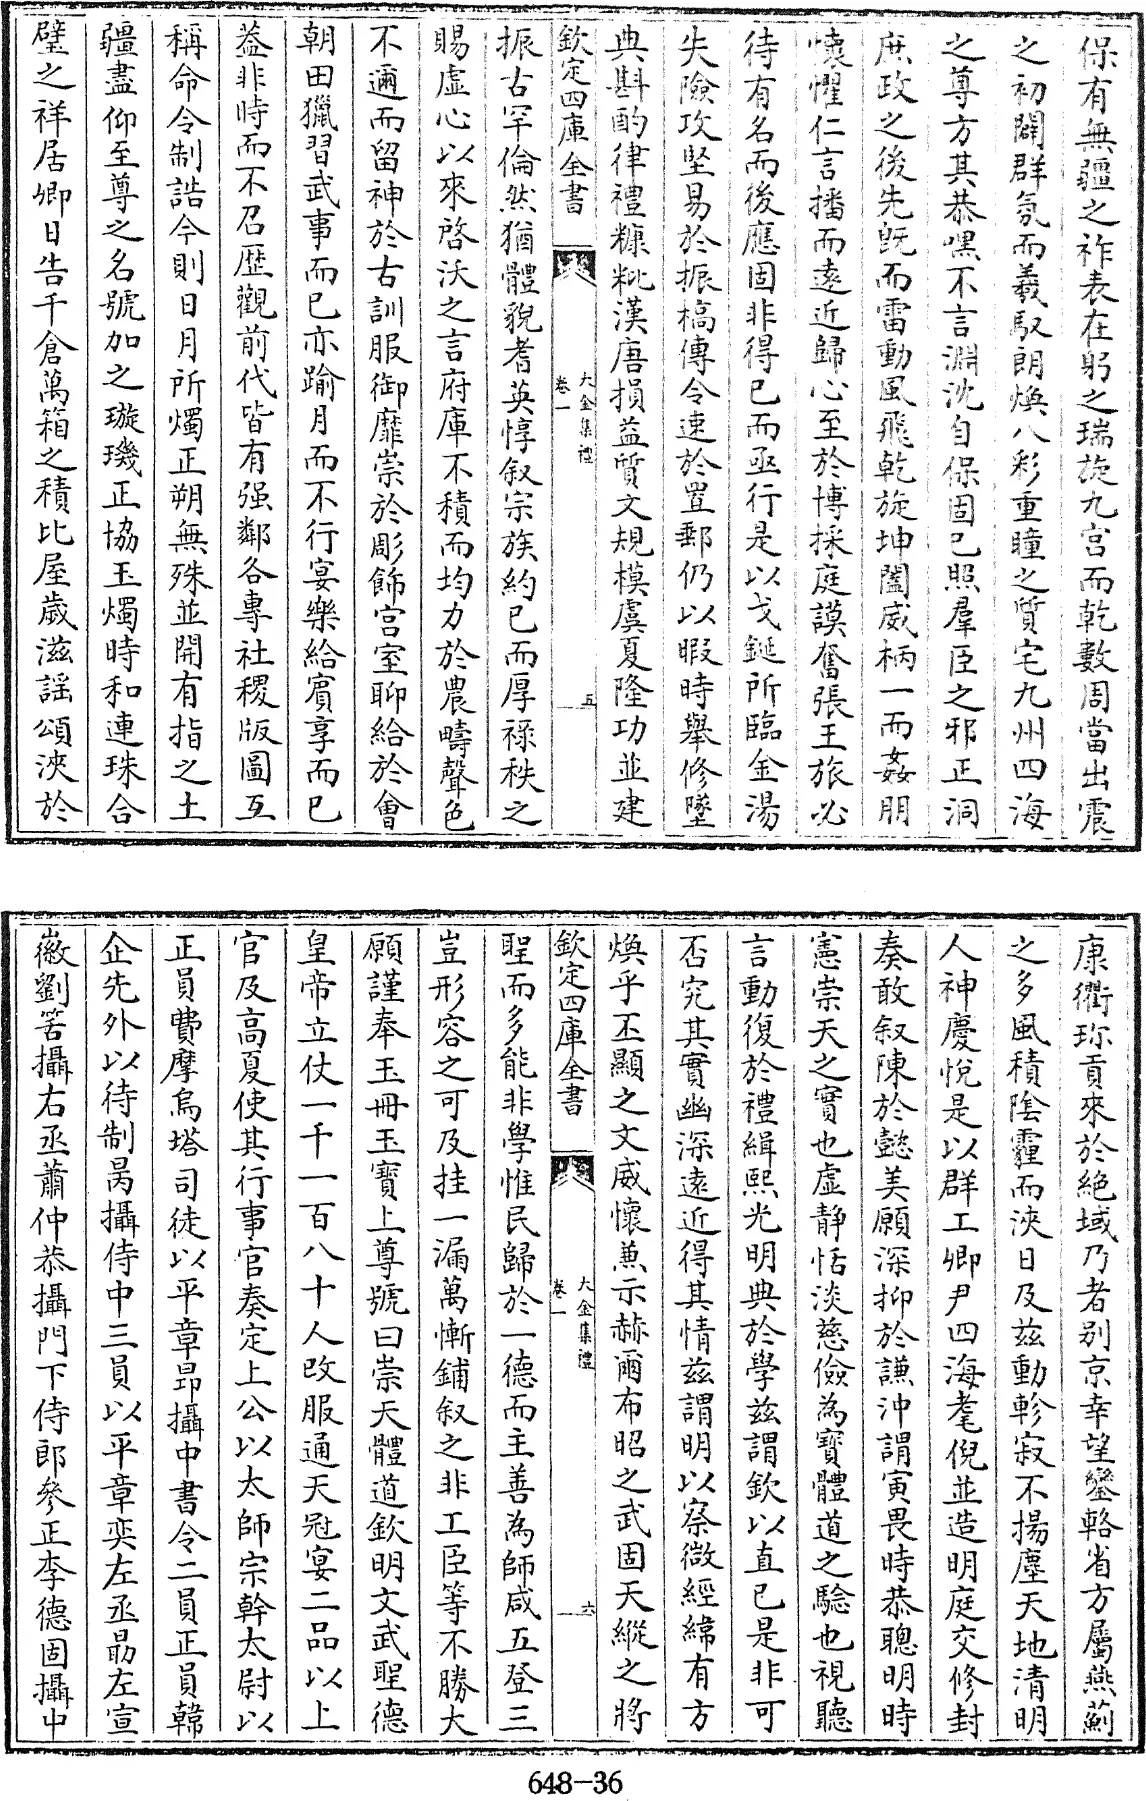 保有無疆之祚表在躬之瑞旋九宫而乾數周當出震
之初闢群氛而羲馭朗煥八彩重瞳之質宅九州四海
之尊方其恭嘿不言淵沈自保固已照羣臣之邪正洞
庶政之後先旣而雷動風飛乾旋坤闔威柄一而姦朋
懷懼仁言播而遠近歸心至於博採庭謨奮張王旅必
待有名而後應固非得已而亟行是以戈鋋所臨金湯
失險攻堅易於振槁傳令速於置郵仍以暇時舉修墜
典斟酌律禮糠粃漢唐損益質文規模虞夏隆功並建
欽定四庫全書
大金集禮
卷一
五
振古罕倫然猶體貌耆英惇叙宗族約已而厚祿秩之
賜虛心以來啓沃之言府庫不積而均力於農疇聲色
不邇而留神於古訓服御靡崇於彫飾宫室聊給於會
朝田獵習武事而已亦踰月而不行宴樂給賓享而已
葢非時而不召歷觀前代皆有强鄰各專社稷版圖互
稱命令制誥今則日月所燭正朔無殊並開有指之土
疆盡仰至尊之名號加之璇璣正協玉燭時和連珠合
璧之祥居卿日告千倉萬箱之積比屋歲滋謡頌浹於
康衢珎貢來於絶域乃者别京幸望鑾輅省方屬燕薊
之多風積陰霾而浹日及兹動軫寂不揚塵天地清明
人神慶悅是以群工卿尹四海耄倪並造明庭交修封
奏敢叙陳於懿美願深抑於謙沖謂寅畏時恭聰明時
憲崇天之實也虛静恬淡慈儉為寳體道之騐也視聽
言動復於禮緝熙光明典於學兹謂欽以直已是非可
否究其實幽深遠近得其情兹謂明以察微經緯有方
煥乎丕顯之文威懷兼示赫爾布昭之武固天縱之將
欽定四庫全書
大金集禮
卷一
六
聖而多能非學惟民歸於一德而主善為師咸五登三
豈形容之可及挂一漏萬慚鋪叙之非工臣等不勝大
願謹奉玉冊玉寳上尊號曰崇天體道欽明文武聖德
皇帝立仗一千一百八十人改服通天冠宴二品以上
官及高夏使其行事官奏定上公以太師宗幹太尉以
正員費摩烏塔司徒以平章昻攝中書令二員正員韓
企先外以待制昺攝侍中三員以平章奕左丞勗左宣
徽劉筈攝右丞蕭仲恭攝門下侍郎參正李德固攝中
648-36